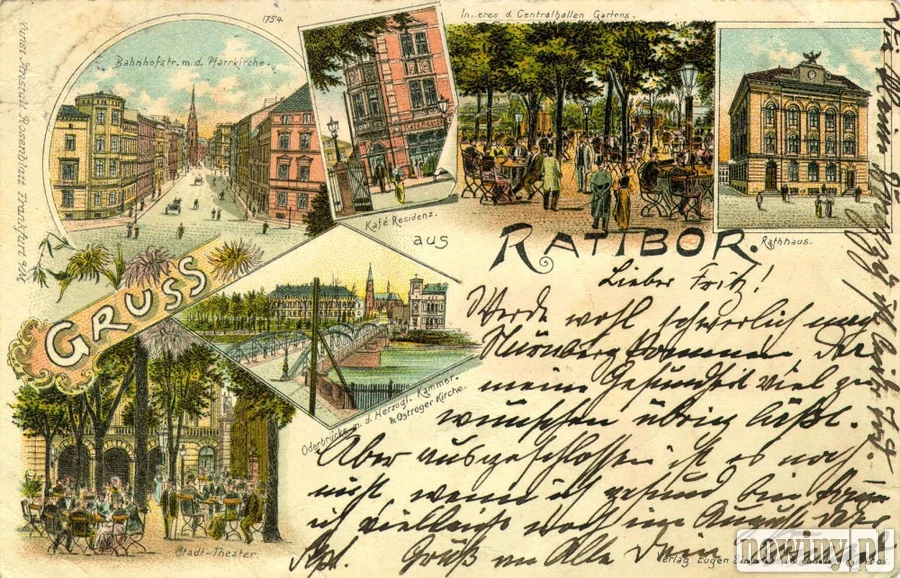 1754.
Bahnhofstr. m. d. Pfarrkirche.
Kunst-Anstalt Rosenblatt Frankfurt a/M.
Inneres d. Centralhallen Gartens.
Kafé Residenz.
Rathhaus.
GRUSS
aus
RATIBOR.
Oderbrücke m. d. Herzogl. Kammer.
& Ostroger Kirche.
Stadt-Theater.
Lieber Fritz!
Werde wohl schwerlich nach
Nürnberg kommen, da
meine Gesundheit viel zu
wünschen übrig läßt.
Aber ausgeschlossen ist es noch
nicht, wenn ich gesund bin
ich vielleicht noch im August oder
Spt. Gruß an Alle Dein
Verlag Eugen
nowiny.pl